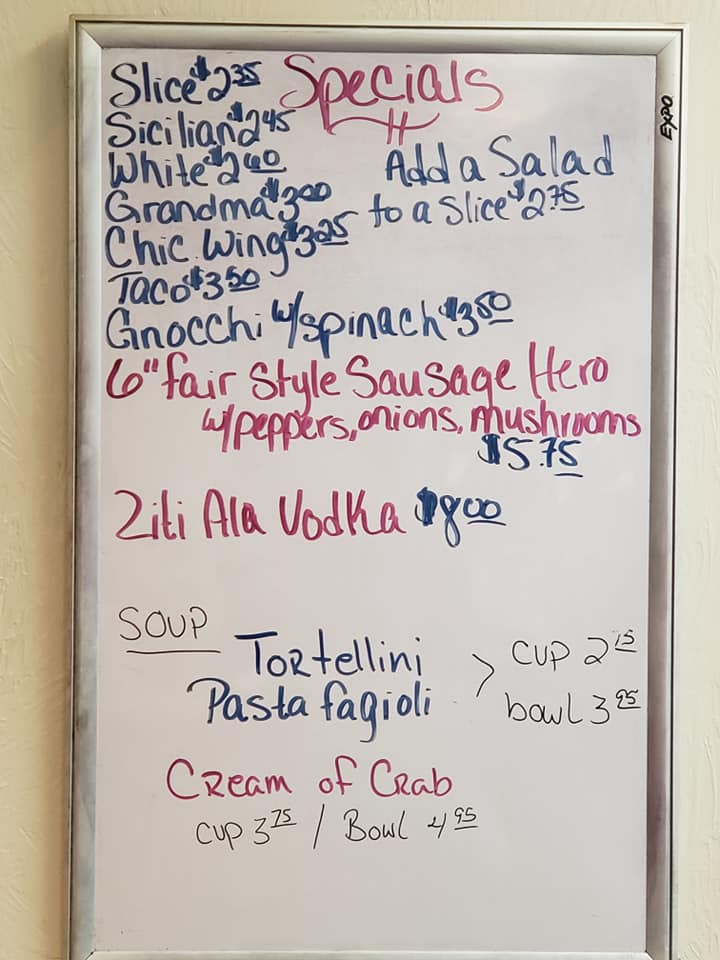 Specials
Slice $2.35
Sicilian $2.45
White $2.60
Grandma $3.00
Chic Wing $3.25
Taco $3.50
Gnocchi w/spinach $3.50
Add a Salad
to a Slice $2.75
6" fair Style Sausage Hero
w/peppers, onions, mushrooms
$5.75
Ziti Ala Vodka $8.00
SOUP
Tortellini
Pasta fagioli
> CUP 2 75
bowl 3 95
Cream of Crab
CUP 3 75 / Bowl 4 95
EXPO